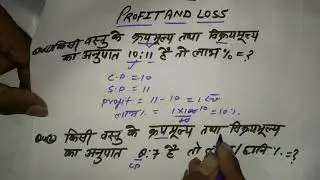 PROFIT AND LOSS
किसी वस्तु के क्रयमूल्य तथा विक्रयमूल्य
का अनुपात 10:11 है तो लाभ % = ?
C.P = 10
S.P = 11
Profit = 11 - 10 = 1
लाभ% = 1×100/10 = 10%
किसी वस्तु के क्रयमूल्य तथा विक्रयमूल्य
का अनुपात 8:7 है तो / हानि % = ?
CP